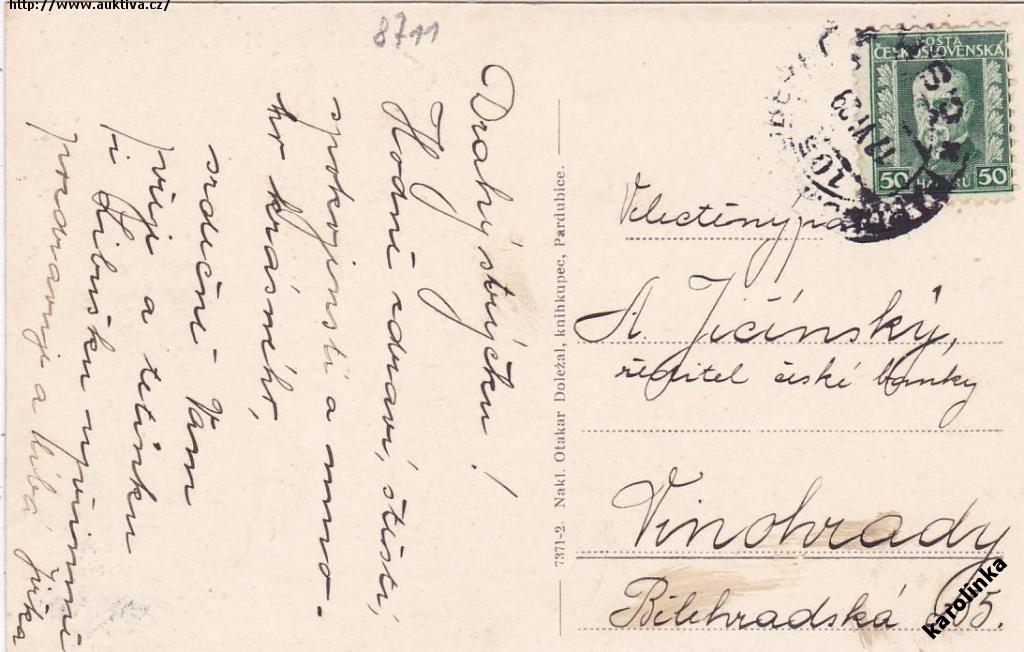 http://www.auktiva.cz/
8711
Drahý strýčku!
Hodně zdraví, štěstí,
spokojenosti a mno-
ho krásného,
srdečně Vám
přeje a tetinku
i Libušku upřímně
pozdravuje a líbá Jirka
7371-2. Nakl. Otakar Doležal, knihkupec, Pardubice.
POŠTA
ČESKOSLOVENSKÁ
50 HALÉŘŮ 50
Velectěný pán
A. Jičínský,
ředitel české banky
Vinohrady
Bělehradská
karolinka